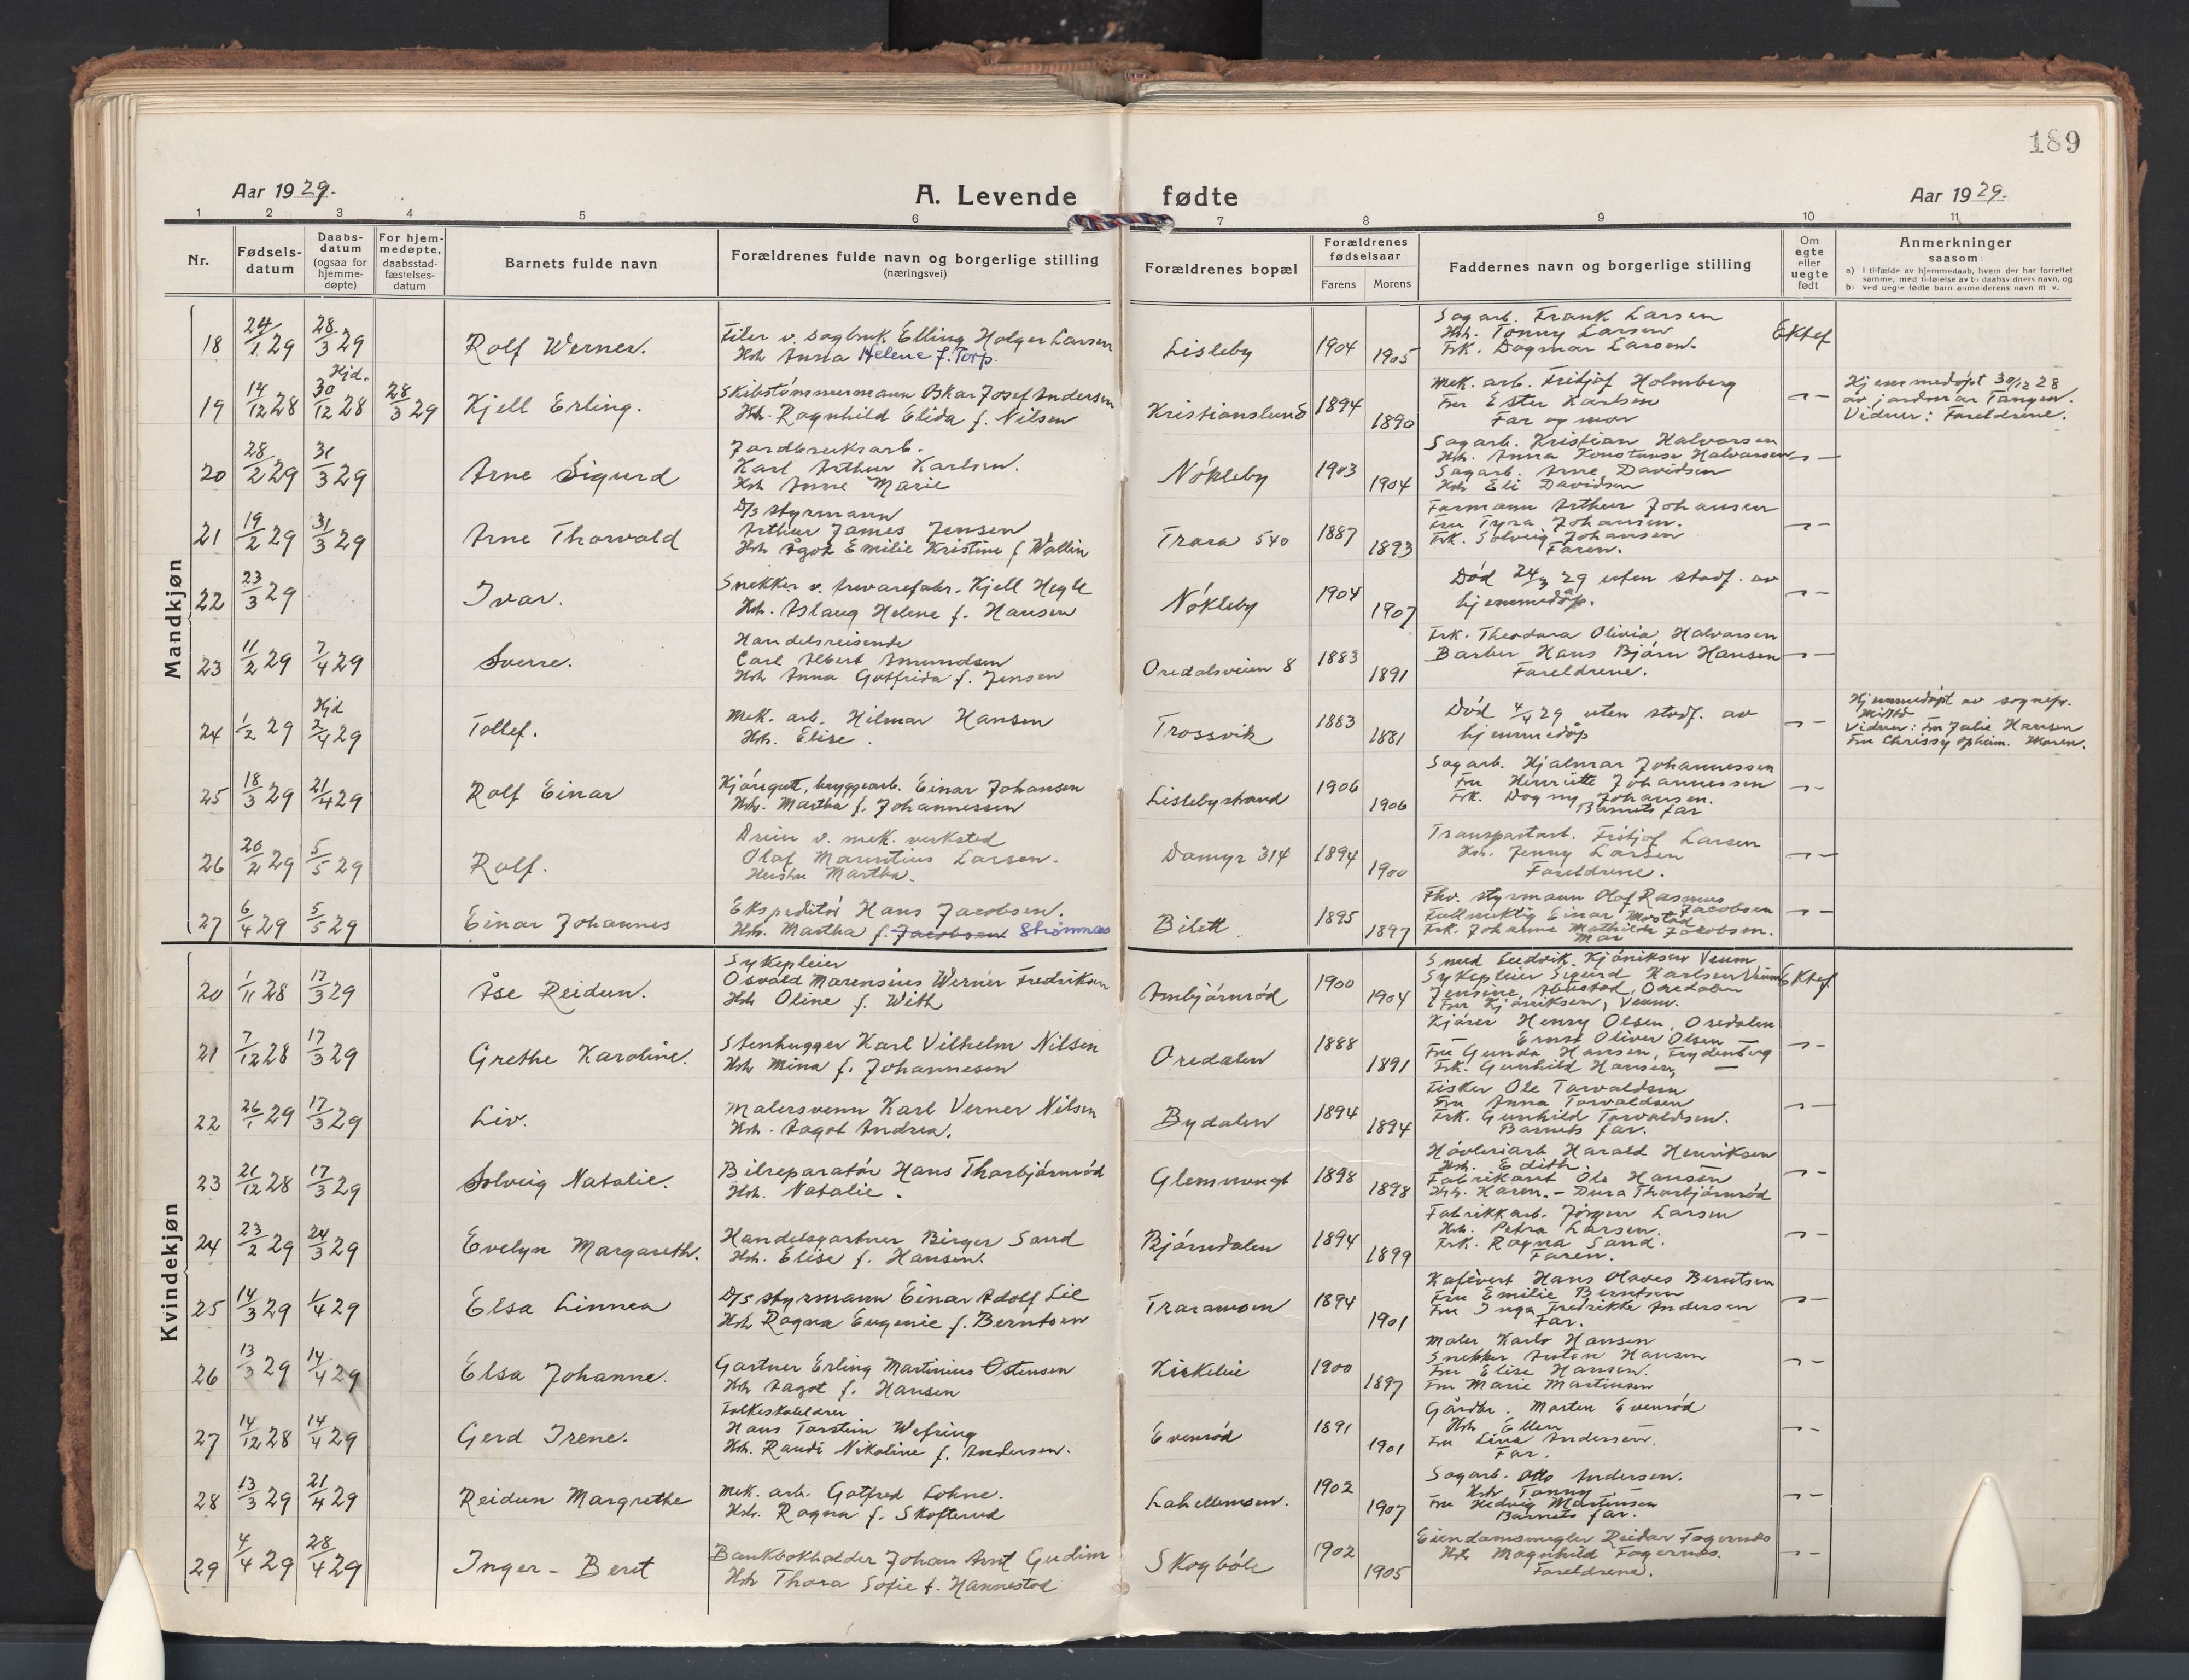 189
Aar 1929.
A. Levende fødte
Aar 1929.
1 2 3 4 5 6 7 8 9 10 11
Nr.
Fødsels-
datum
Daabs-
datum
(ogsaa for
hjemme-
døpte)
For hjem-
medøpte,
daabsstad-
fæstelses-
datum
Barnets fulde navn
Forældrenes fulde navn og borgerlige stilling
(næringsvei)
Forældrenes bopæl
Forældrenes
fødselsaar
Farens Morens
Faddernes navn og borgerlige stilling
Om
egte
eller
uegte
født
Anmerkninger
saasom:
a) i tilfælde av hjemmedaab, hvem der har forrettet
samme, med tilføielse av to daabsvidners navn, og
b) ved uegte fødte barn anmelderens navn m. v.
Mandkjøn
18 24/1 29 28/3 29 Rolf Werner.
Filer v. sagbruk Elling Holger Larsen
Hst. Anna Helene f. Torp.
Lisleby 1904 1905
Sagarb. Frank Larsen
Hst. Tonny Larsen
Frk. Dagmar Larsen.
Ektef
19 14/12 28 Hjd. 30/12 28 28/3 29 Kjell Erling.
Skibstømmermann Oskar Josef Andersen
Hst. Ragnhild Elida f. Nilsen
Kristianslund 1894 1890
Mek. arb. Fritjof Holmberg
Fru Ester Karlsen
Far og mor
Hjemmedøpt 30/12 28
av jordmor Tangen.
Vidner: Foreldrene.
20 28/2 29 31/3 29 Arne Sigurd
Jordbruksarb.
Karl Arthur Karlsen.
Hst Anne Marie
Nøkleby 1903 1904
Sagarb. Kristian Halvorsen
Hst. Anna Konstanse Halvorsen
Sagarb. Arne Davidsen
Hst Eli Davidsen
21 19/2 29 31/3 29 Arne Thorvald
D/s styrmann
Arthur James Jensen
Hst Ågot Emilie Kristine f Wallin
Trara 540 1887 1893
Formann Arthur Johansen
Fru Tyra Johansen.
Frk. Solveig Johansen
Faren.
22 23/3 29 Ivar.
Snekker v. trevarefabr. Kjell Hegle
Hst. Aslaug Helene f. Hansen
Nøkleby 1904 1907
Død 24/3 29 uten stadf. av
hjemmedåp.
23 11/2 29 7/4 29 Sverre.
Handelsreisende
Carl Albert Amundsen
Hst Anna Gotfrida f. Jensen
Oredalsveien 8 1883 1891
Frk. Theodora Olivia Halvorsen
Barber Hans Bjørn Hansen
Foreldrene.
24 1/2 29 Hjd 2/4 29 Tollef.
Mek. arb. Hilmar Hansen
Hst. Elise.
Trossvik 1883 1881
Død 4/4 29 uten stadf. av
hjemmedåp
Hjemmedøpt av sognepr.
Vidner: Fru Julie Hansen
Fru Chrissy Opheim. Moren.
25 18/3 29 21/4 29 Rolf Einar
Kjøregutt, bryggearb. Einar Johansen
Hst. Martha f. Johannessen
Lislebystrand 1906 1906
Sagarb. Hjalmar Johannessen
Fru Henriette Johannessen
Frk. Dagny Johansen.
Barnets far
26 20/2 29 5/5 29 Rolf.
Dreier v. mek. verksted
Olaf Mauritius Larsen.
Hustru Martha.
Damyr 314 1894 1900
Transportarb. Fritjof Larsen
Hst. Jenny Larsen
Foreldrene.
27 6/4 29 5/5 29 Einar Johannes
Ekspeditør Hans Jacobsen.
Hst. Martha f. Jacobsen Strømnæs
Bilett 1895 1897
Fhv. styrmann Olaf Rasmus Jacobsen
Fullmektig Einar Mostad
Frk. Johanne Mathilde Jacobsen.
Mor
Kvindekjøn
20 1/11 28 17/3 29 Åse Reidun.
Sykepleier
Osvald Marensius Werner Fredriksen
Hst Oline f. With
Ambjørnrød 1900 1904
Smed Ludvik Kjøniksen Veum
Sykepleier Sigurd Karlsen Veum
Jensine, Oredalen
Fru Kjøniksen, Veum.
Ektef
21 7/12 28 17/3 29 Grethe Karoline.
Stenhugger Karl Vilhelm Nilsen
Hst Mina f. Johannesen
Oredalen 1888 1891
Kjører Henry Olsen, Oredalen
— Ernst Oliver Olsen —
Fru Gunda Hansen, Frydenberg
Frk. Gunhild Hansen, —
22 26/1 29 17/3 29 Liv.
Malersvenn Karl Verner Nilsen
Hst. Aagot Andrea.
Bydalen 1894 1894
Fisker Ole Torvaldsen
Fru Anna Torvaldsen
Frk. Gunhild Torvaldsen.
Barnets far.
23 21/12 28 17/3 29 Solveig Natalie.
Bilreparatør Hans Thorbjørnrød
Hst. Natalie.
Glemmengt 1898 1898
Høvleriarb Harald Henriksen
Hst. Edith.
Fabrikant Ole Hansen
Hst. Karen. — Dura Thorbjørnrød
24 23/2 29 24/3 29 Evelyn Margareth.
Handelsgartner Birger Sand
Hst. Elise f. Hansen.
Bjørndalen 1894 1899
Fabrikkarb. Jörgen Larsen
Hst. Petra Larsen.
Frk. Ragna Sand.
Faren.
25 14/3 29 1/4 29 Elsa Linnea
D/s styrmann Einar Adolf Lie
Hst Ragna Eugenie f. Berntsen
Traramoen 1894 1901
Kafévert Hans Olaves Berntsen
Fru Emilie Berntsen
Fru Inga Fredrikke Andersen
Far.
26 13/3 29 14/4 29 Elsa Johanne.
Gartner Erling Martinius Ostensen
Hst Aagot f. Hansen
Kirkelie 1900 1897
Maler Karlo Hansen
Snekker Anton Hansen
Fru Elise Hansen.
Fru Marie Martinsen
27 14/12 28 14/4 29 Gerd Irene.
Folkeskolelærer
Hans Torstein Wefring
Hst. Randi Nikoline f. Andersen.
Evenrød 1891 1901
Gårdbr. Morten Evenrød
Hst Ellen
Fru Lina Andersen.
Far.
28 13/3 29 21/4 29 Reidun Margrethe
Mek. arb. Gotfred Lohne.
Hst. Ragna f. Skofterud
Lahellemoen. 1902 1907
Sagarb. Otto Andersen.
Hst Tonny —
Fru Hedvig Martinsen
Barnets far.
29 4/4 29 28/4 29 Inger - Berit
Bankbokholder Johan Arnt Gudim
Hst Thora Sofie f. Hannestad
Skogbøle 1902 1905
Eiendomsmegler Reidar Fagernes
Hst Magnhild Fagernes.
Foreldrene.